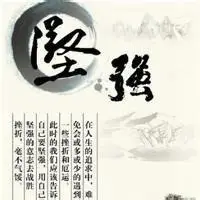 堅强
在人生的追求中，难
免会或多或少的遇到
一些挫折和厄运。
此时的我们应该告诉
自己要坚强，用自己
坚强的意志去战胜
挫折，毫不气馁。